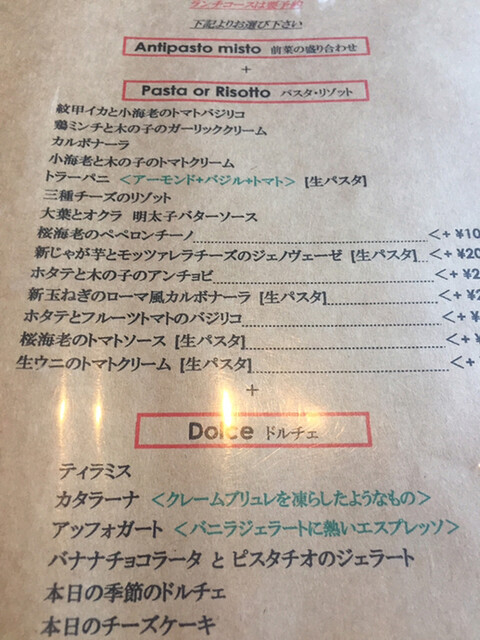 ランチコースは要予約
下記よりお選び下さい
Antipasto misto 前菜の盛り合わせ
+
Pasta or Risotto パスタ・リゾット
紋甲イカと小海老のトマトバジリコ
鶏ミンチと木の子のガーリッククリーム
カルボナーラ
小海老と木の子のトマトクリーム
トラーパニ <アーモンド+バジル+トマト> [生パスタ]
三種チーズのリゾット
大葉とオクラ 明太子バターソース
桜海老のペペロンチーノ <+ ¥10
新じゃが芋とモッツァレラチーズのジェノヴェーゼ [生パスタ] <+ ¥20
ホタテと木の子のアンチョビ <+ ¥2
新玉ねぎのローマ風カルボナーラ [生パスタ] <+ ¥2
ホタテとフルーツトマトのバジリコ <+ ¥
桜海老のトマトソース [生パスタ] <+ ¥
生ウニのトマトクリーム [生パスタ] <+
+
Dolce ドルチェ
ティラミス
カタラーナ <クレームブリュレを凍らしたようなもの>
アッフォガート <バニラジェラートに熱いエスプレッソ>
バナナチョコラータ と ピスタチオのジェラート
本日の季節のドルチェ
本日のチーズケーキ